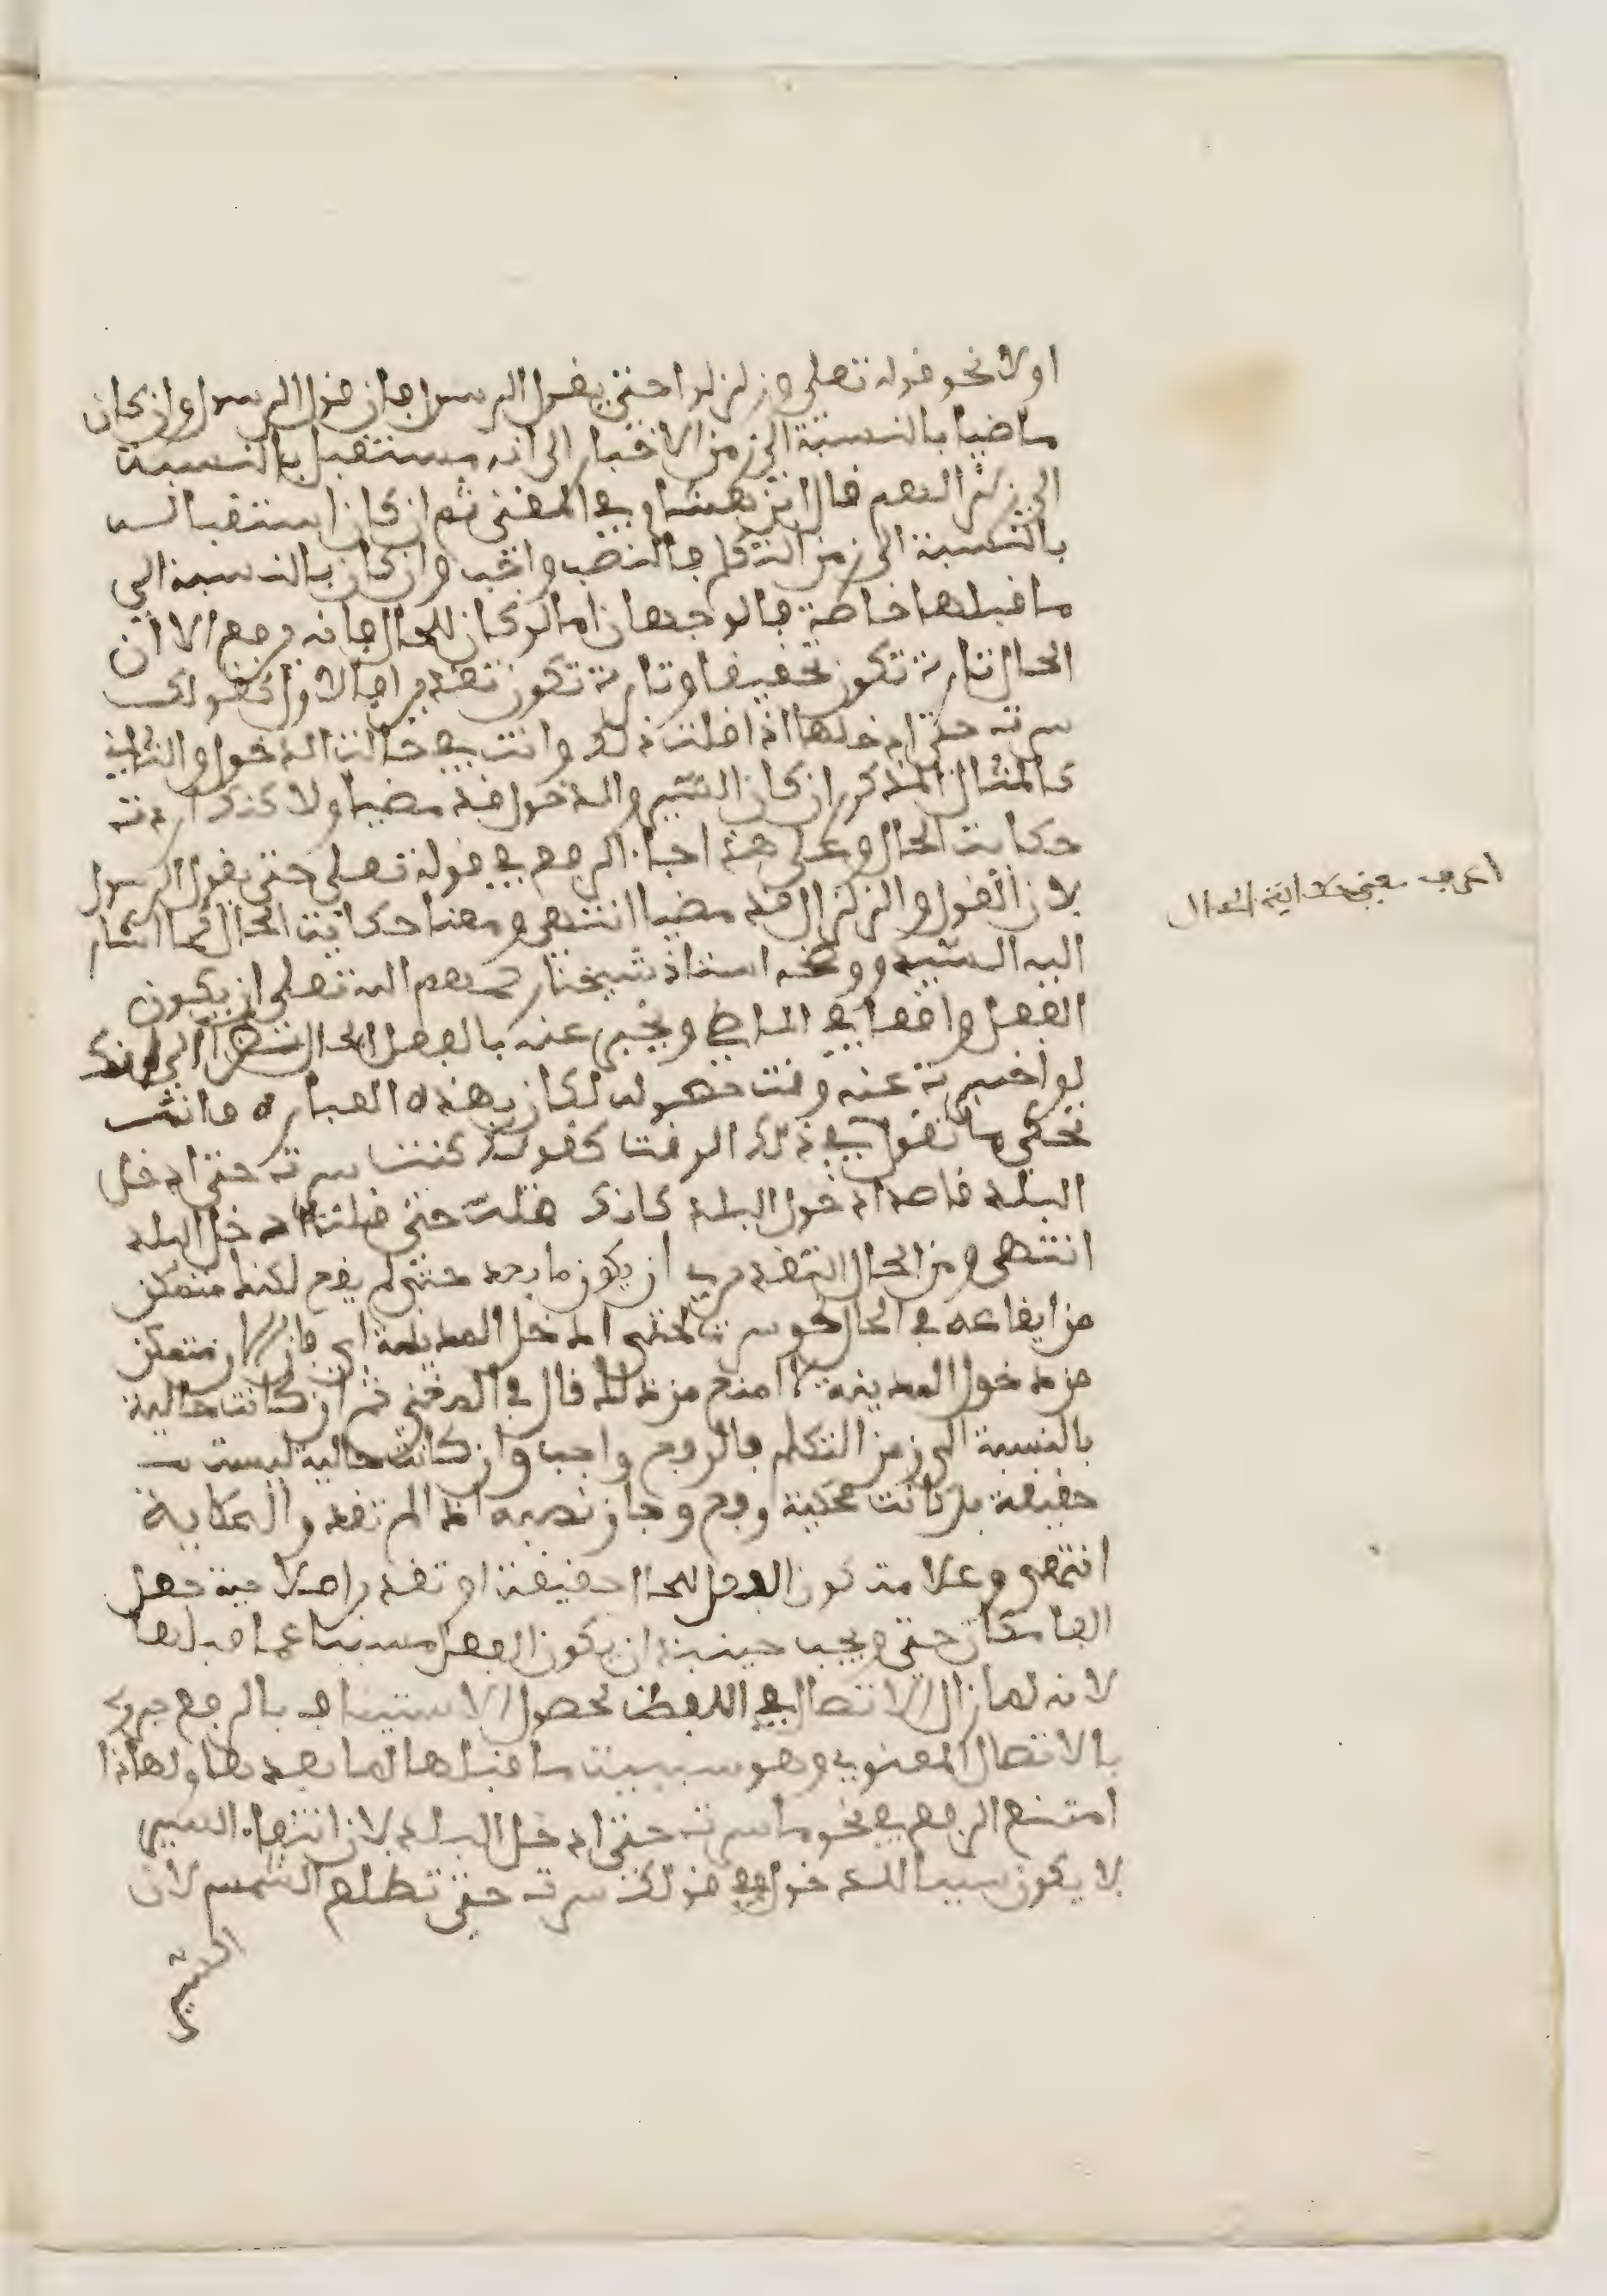 اولا نحو قوله تعلى وزلزلوا حتى يقول الرسول فان قول الرسول وان كان
ماضيا بالنسبة الى زمن الاخبار الى انه مستقبل بالنسبة
الى زلزالهم قال ابن هشام في المغني ثم ان كان استقباله
بالنسبة الى زمن التكلم فالنصب واجب وان كان بالنسبة الى
ما قبلها خاصة فالوجهان اما لو كان للحال فانه يرفع الا ان
الحال تارة تكون تحقيقا وتارة تكون تقديرا فالاول كقولك
سرت حتى ادخلها اذا قلت ذلك وانت في حالت الدخول والثاني
كالمثال المذكور ان كان السير والدخول قد مضيا ولاكن اردت
حكايت الحال وعلى هذا جاء الرفع في قوله تعلى حتى يقول الرسول
لان القول والزلزال قد مضيا انتهى ومعنا حكايت الحال كما اشار
اليه السيد ووضحه استاذ شيخنا رحمهم الله تعلى ان يكون
الفعل واقعا في الماضي ويخبر عنه بالفعل الحال الى انك
لو اخبرت عنه وقت حصوله لكان بهذه العباره فانت
تحكي ما تقول في ذلك الوقت كقولك كنت سرت حتى ادخل
البلد قاصدا دخول البلد كانك قلت حتى قلت ادخل البلد
انتهى ومن الحال التقديري ان يكون ما بعد حتى لم يقع لكنك متمكن
من ايقاعه في الحال نحو سرت حتى ادخل المدينة اي فان الان متمكن
من دخول المدينة لا امنع من ذلك قال في المغني ثم ان كانت حالية
بالنسبة الى زمن التكلم فالرفع واجب وان كانت حالية ليست
حقيقة بل كانت محكية رفع وجاز نصبه اذا لم تقدر الحكاية
انتهى وعلامة كون الفعل للحال حقيقة او تقديرا صلاحية جعل
الفا مكان حتى ويجب حينئذ ان يكون الفعل مسببا عما قبلها
لانه لما زال الاتصال في اللفظ لحصول الاستيناف بالرفع جبر
بالاتصال المعنوي وهو سببيت ما قبلها لما بعدها ولهاذا
امتنع الرفع في نحو ما سرت حتى ادخل البلد لان انتفاء السير
لا يكون سببا للدخول وفي قولك سرت حتى تطلع الشمس لان
السير
اعرف معنى حكاية الحال